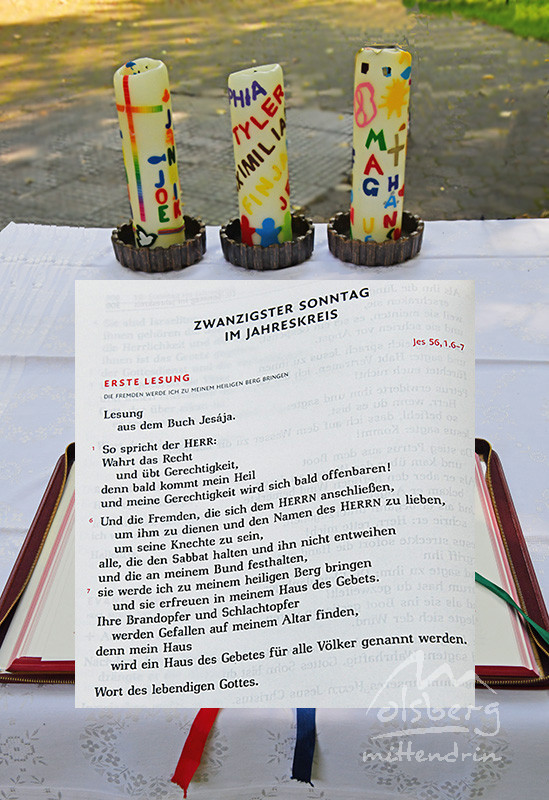 PHIA
TYLER
XIMILIA
FINJA
JOE
MAG
HAN
ZWANZIGSTER SONNTAG
IM JAHRESKREIS
Jes 56,1.6–7
ERSTE LESUNG
DIE FREMDEN WERDE ICH ZU MEINEM HEILIGEN BERG BRINGEN
Lesung
aus dem Buch Jesája.
1 So spricht der HERR:
Wahrt das Recht
und übt Gerechtigkeit,
denn bald kommt mein Heil
und meine Gerechtigkeit wird sich bald offenbaren!
6 Und die Fremden, die sich dem HERRN anschließen,
um ihm zu dienen und den Namen des HERRN zu lieben,
um seine Knechte zu sein,
alle, die den Sabbat halten und ihn nicht entweihen
und die an meinem Bund festhalten,
7 sie werde ich zu meinem heiligen Berg bringen
und sie erfreuen in meinem Haus des Gebets.
Ihre Brandopfer und Schlachtopfer
werden Gefallen auf meinem Altar finden,
denn mein Haus
wird ein Haus des Gebetes für alle Völker genannt werden.
Wort des lebendigen Gottes.
olsberg
mittendrin